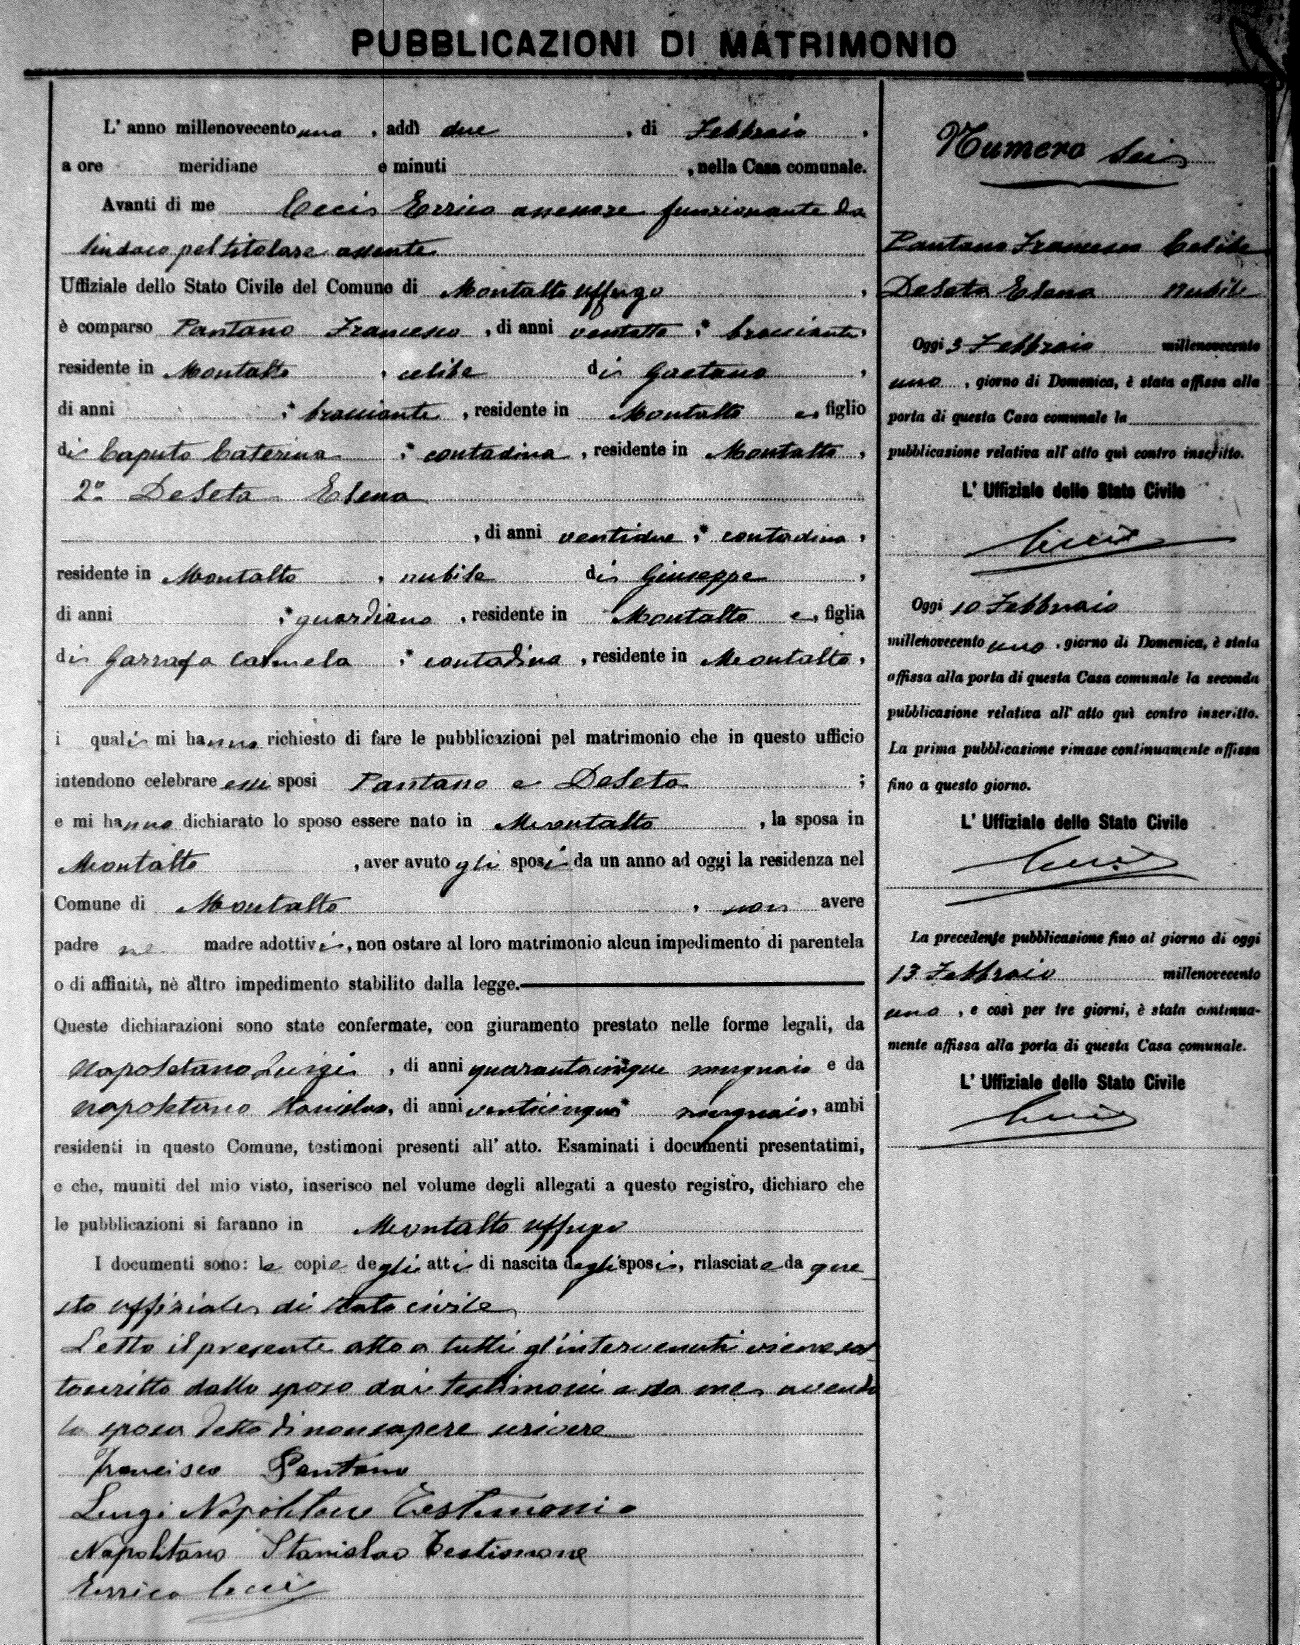 PUBBLICAZIONI DI MATRIMONIO
L' anno millenovecento uno , addì due , di Febbraio ,
a ore meridiane e minuti , nella Casa comunale.
Avanti di me Cecis Errico assessore funzionante da
sindaco pel titolare assente
Uffiziale dello Stato Civile del Comune di Montalto Uffugo ,
è comparso Pantano Francesco , di anni ventotto , bracciante,
residente in Montalto , celibe di Gaetano ,
di anni , bracciante , residente in Montalto e, figlio
di Caputo Caterina , contadina , residente in Montalto ,
2° DeSeta Elena
, di anni ventidue , contadina ,
residente in Montalto , nubile di Giuseppe ,
di anni , guardiano , residente in Montalto e , figlia
di Garrafa Carmela , contadina , residente in Montalto ,
i quali mi hanno richiesto di fare le pubblicazioni pel matrimonio che in questo ufficio
intendono celebrare essi sposi Pantano e DeSeta ;
e mi hanno dichiarato lo sposo essere nato in Montalto , la sposa in
Montalto , aver avuto gli sposi da un anno ad oggi la residenza nel
Comune di Montalto , non avere
padre ne madre adottivi, non ostare al loro matrimonio alcun impedimento di parentela
o di affinità, nè altro impedimento stabilito dalla legge.
Queste dichiarazioni sono state confermate, con giuramento prestato nelle forme legali, da
Napoletano Luigi , di anni quarantacinque mugnaio e da
Napoletano Stanislao, di anni venticinque mugnaio, ambi
residenti in questo Comune, testimoni presenti all' atto. Esaminati i documenti presentatimi,
e che, muniti del mio visto, inserisco nel volume degli allegati a questo registro, dichiaro che
le pubblicazioni si faranno in Montalto Uffugo
I documenti sono: le copie degli atti di nascita degli sposi, rilasciate da que_
sto uffiziale di stato civile
Letto il presente atto a tutti gl'intervenuti viene sot_
toscritto dallo sposo dai testimoni e da me, avendo
la sposa detto di non sapere scrivere
Francisco Pantano
Luigi Napolitano Testimonio
Napolitano Stanislao Testimone
Errico Cecis
Numero Sei
Pantano Francesco Celibe
DeSeta Elena Nubile
Oggi 3 Febbraio millenovecento
uno , giorno di Domenica, è stata affissa alla
porta di questa Casa comunale la
pubblicazione relativa all' atto quì contro inscritto.
L' Uffiziale dello Stato Civile
Cecis
Oggi 10 Febbraio
millenovecento uno , giorno di Domenica, è stata
affissa alla porta di questa Casa comunale la seconda
pubblicazione relativa all' atto quì contro inscritto.
La prima pubblicazione rimase continuamente affissa
fino a questo giorno.
L' Uffiziale dello Stato Civile
Cecis
La precedente pubblicazione fino al giorno di oggi
13 Febbraio millenovecento
uno , e così per tre giorni, è stata continua-
mente affissa alla porta di questa Casa comunale.
L' Uffiziale dello Stato Civile
Cecis